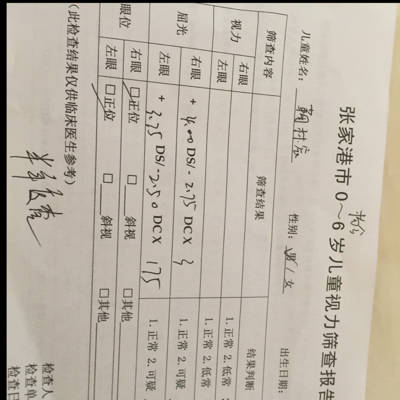 张家港市0~6岁儿童视力筛查报告
儿童姓名： 性别：男/女 出生日期：
筛查内容 筛查结果 结果判断
视力 右眼 1.正常 2.低常
左眼 1.正常 2.低常
屈光 右眼 +4.00 DS/-2.75 DCX 3 1.正常 2.可疑
左眼 +3.75 DS/-2.50 DCX 175 1.正常 2.可疑
眼位 右眼 □正位 □ 斜视 □其他
左眼 □正位 □ 斜视 □其他
（此检查结果仅供临床医生参考）
检查人
检查单
检查日